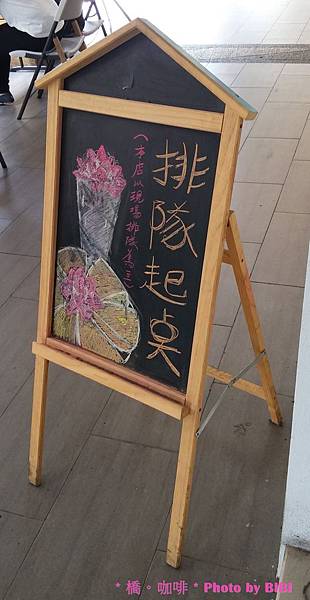 排隊起桌
(本店以現場排隊為主)
*橋。咖啡* Photo by BIBI